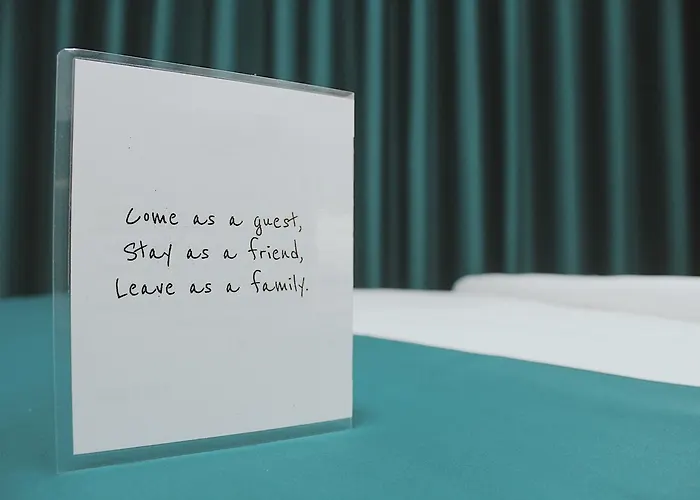 Come as a guest,
Stay as a friend,
Leave as a family.